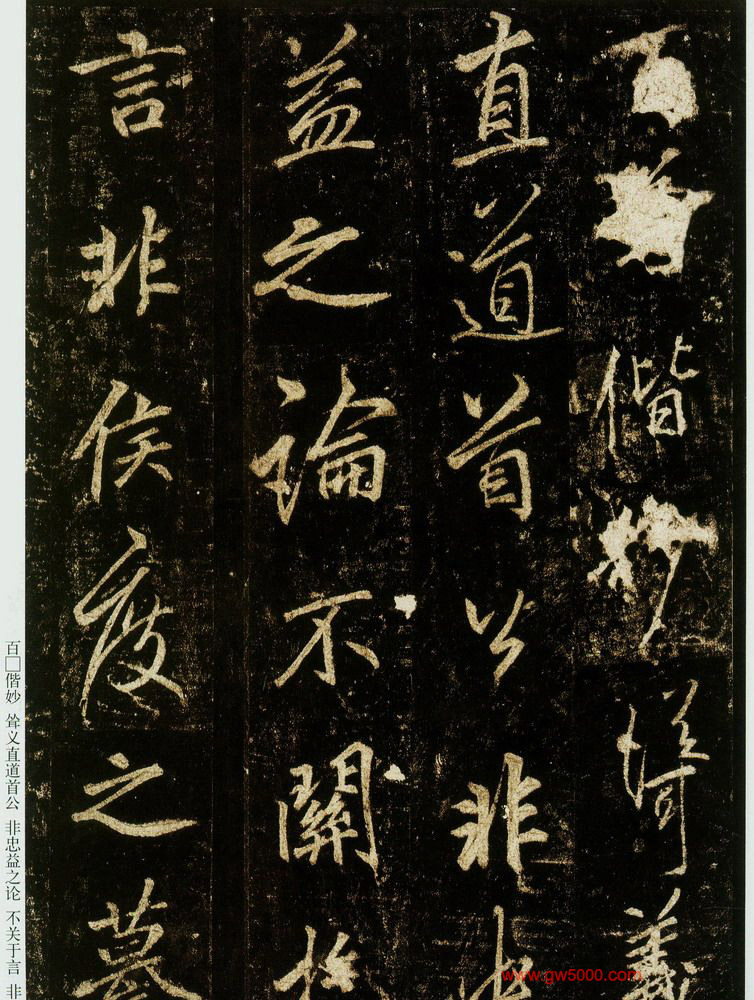 百偕妙義
直道首公非忠
益之論不關於
言非侯度之
百□偕妙 耸义直道首公 非忠益之论 不关于言 非
www.gw5000.com